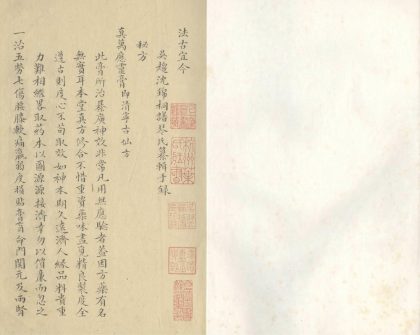 法古宜今
吳趨沈錦桐譜琴氏纂輯手錄
秘方
真萬應靈膏 即清寧古仙方
此膏所治纂廣神效非常凡用無應驗者蓋因方藥有名
無實耳本堂真方修合不惜重資藥味盡覓精良製度全
遵古則虔心不苟取效如神本期久遠濟人緣品料貴重
力難相繼畧取藥本以圖源源接濟幸勿以價廉而忽之
一治五勞七傷腰腰軟痛羸弱虛損貼膏肓命門關元及兩腎